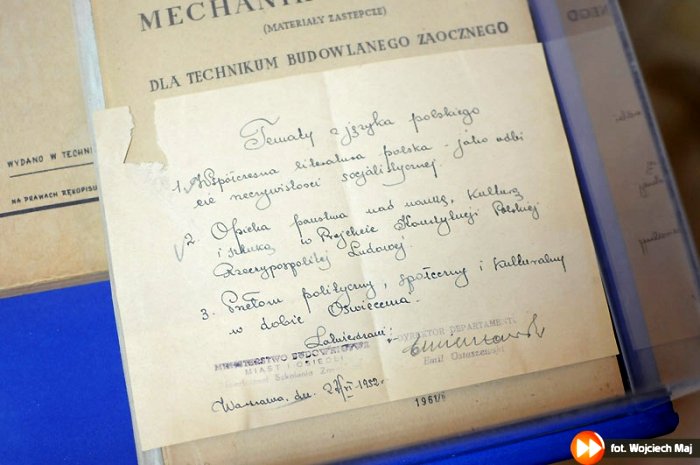 MECHANI
(MATERIAŁY ZASTĘPCZE)
DLA TECHNIKUM BUDOWLANEGO ZAOCZNEGO
WYDANO W TECHNI
NA PRAWACH RĘKOPISU
Tematy z języka polskiego
1. Współczesna literatura polska - jako odbi
cie rzeczywistości socjalistycznej.
2. Opieka państwa nad nauką, kulturą
i sztuką w Projekcie Konstytucji Polskiej
Rzeczypospolitej Ludowej.
3. Przełom polityczny, społeczny i kulturalny
w dobie Oświecenia.
Zatwierdzam:
DYREKTOR DEPARTAMENTU
MINISTERSTWO BUDOWNICTWA
MIAST I OSIEDLI
Departament Szkolenia
Emil
Warszawa, dn. 1952.
1961/
fot. Wojciech Maj